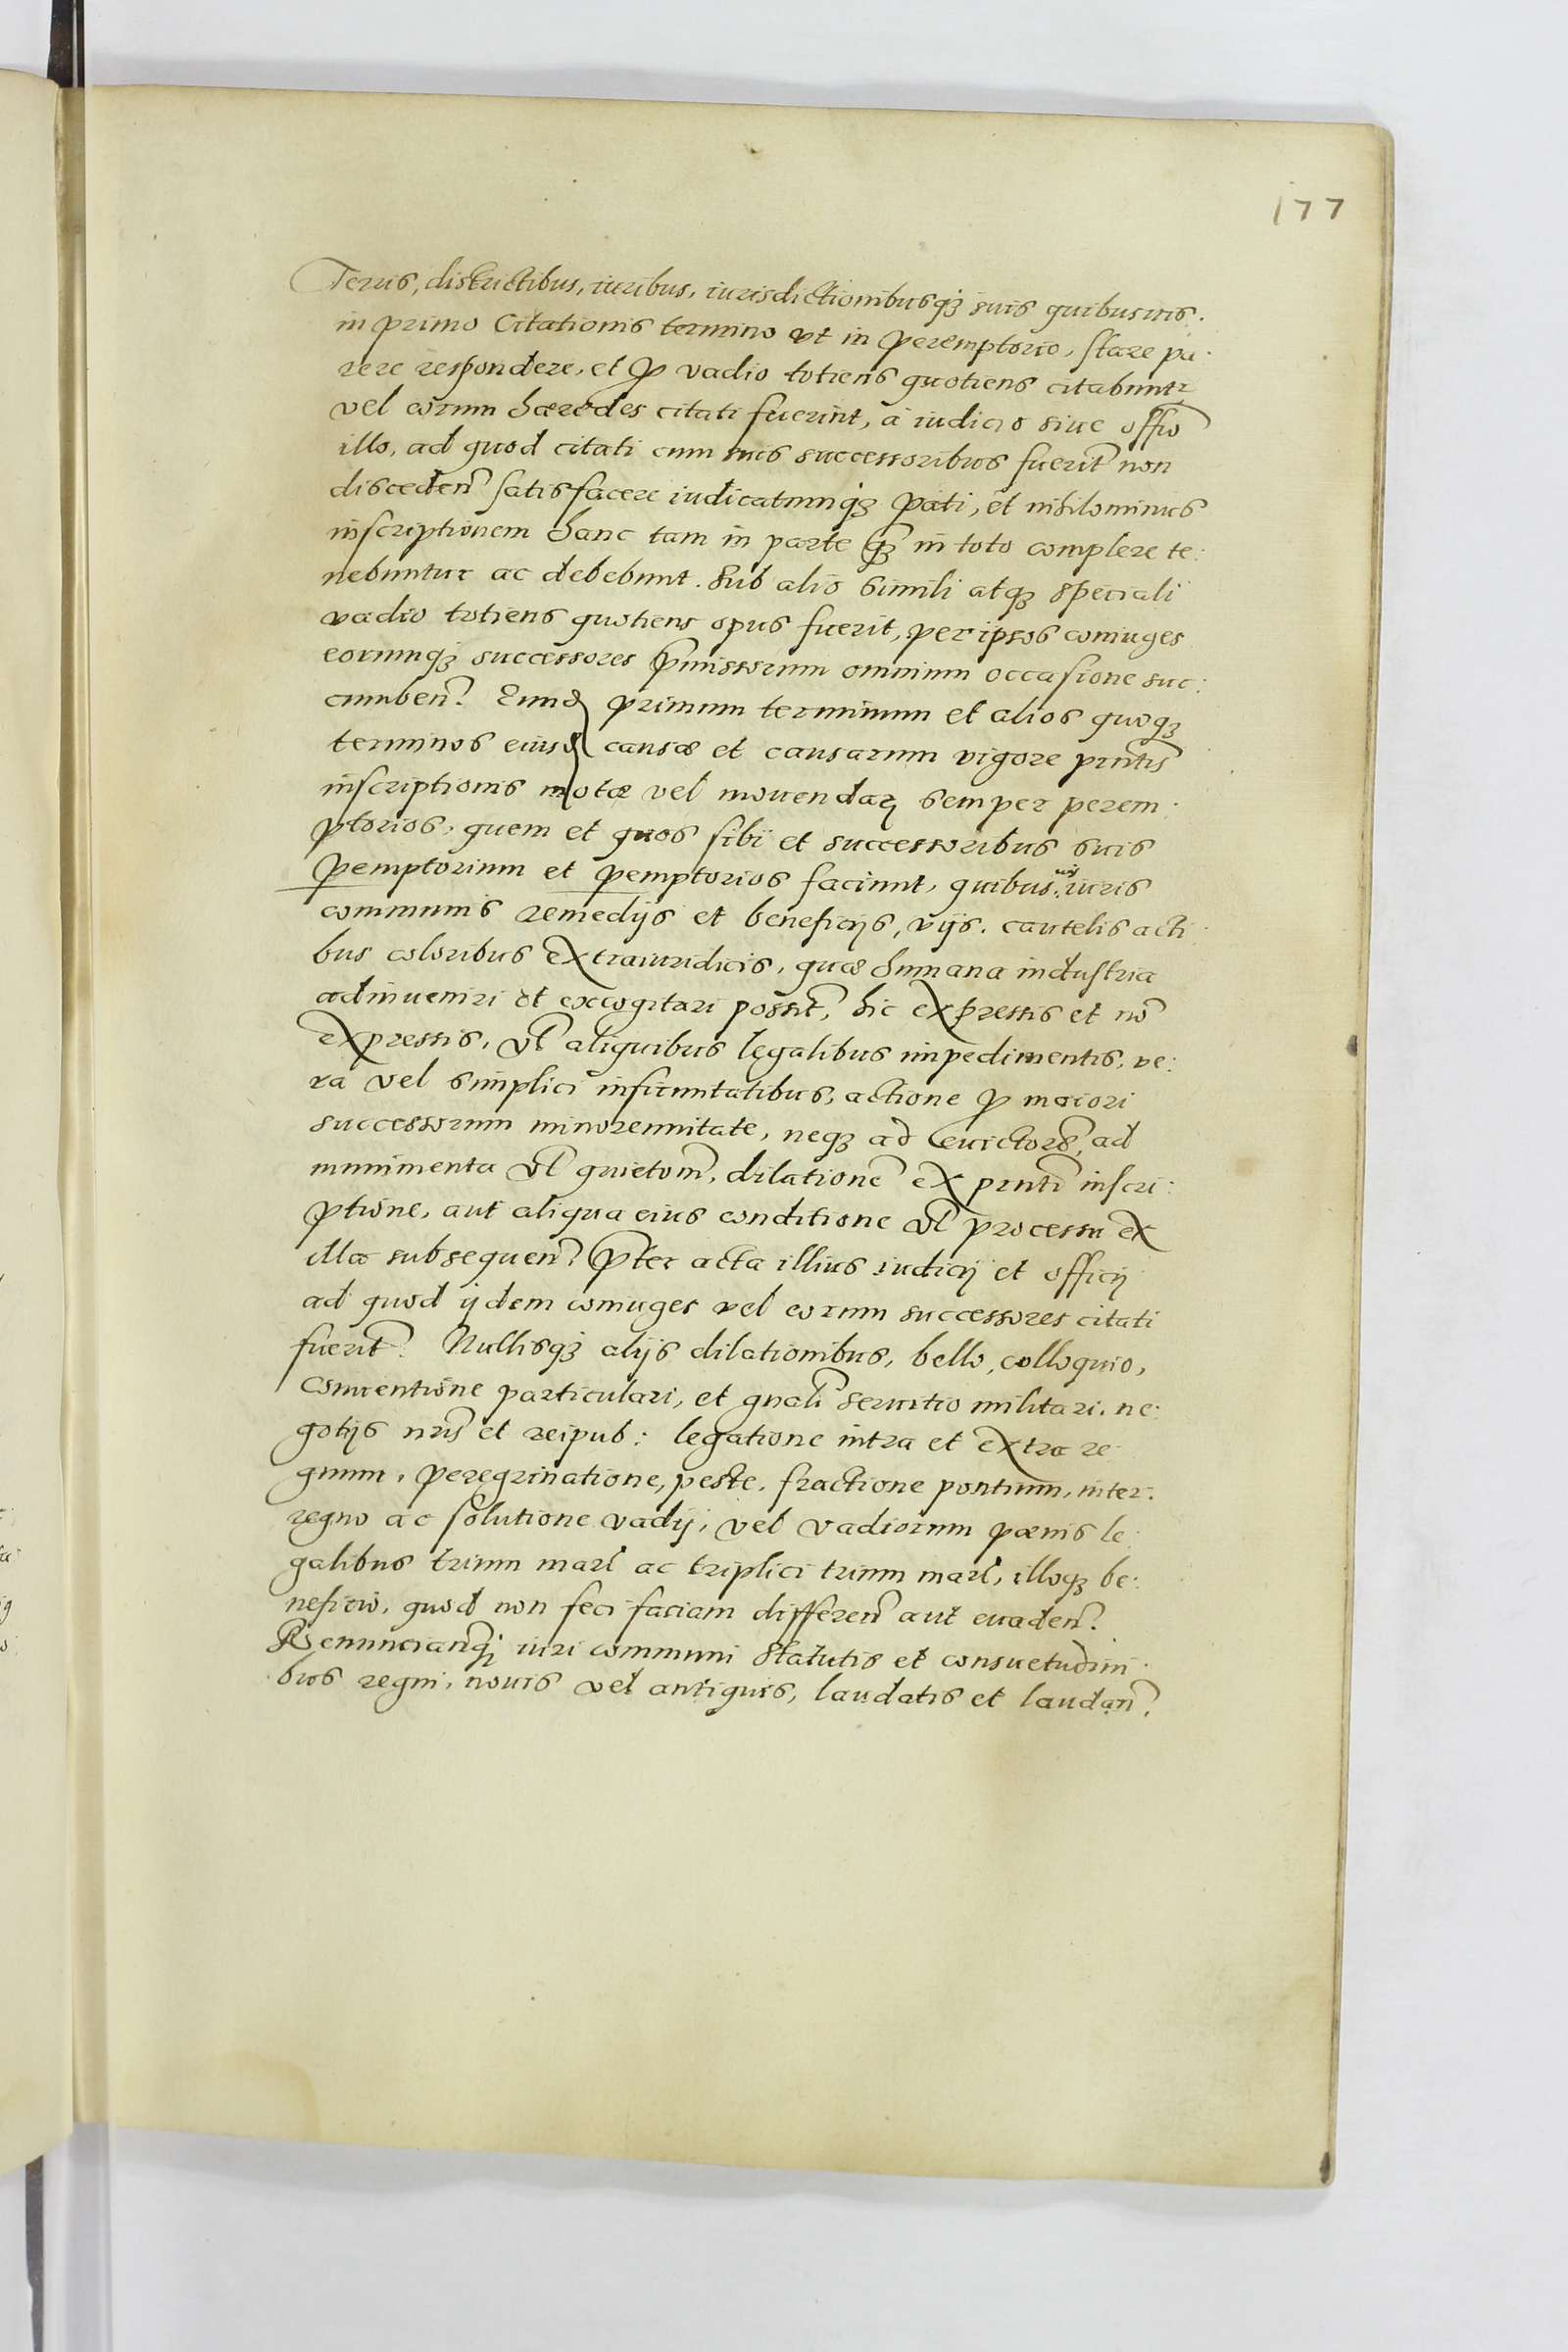 177
Terris, districtibus, iuribus, iurisdictionibusq3 suis quibusuis.
in primo Citationis termino vt in peremptorio, stare pa:
rere respondere, et p vadio totiens quotiens citabuntr
vel eorum hæredes citati fuerint, à iudicio siue offio
illo, ad quod citati cum suis successoribus fuerit non
disceden satisfacere iudicatumq3 pati, et nihilominus
inscriptionem hanc tam in parte q3 in toto complere te:
nebuntur ac debebunt. Sub alio simili atq3 speciali
vadio totiens quotiens opus fuerit, per ipsos coniuges
eorumq3 successores pmissorum omnium occasione suc:
cumben. Eund primum terminum et alios quoq3
terminos eiusd causæ et causarum vigore pntis
inscriptionis motæ vel mouendar semper perem:
ptorios, quem et quos sibi et successoribus suis
pemptorium et pemptorios faciunt, quibusuis iuris
communis remedijs et beneficijs, vijs. cautelis acti:
bus coloribus extraiuridicis, quæ humana industria
adinueniri et excogitari possit, hic expressis et no
expressis, vl aliquibus legalibus impedimentis, ve:
ra vel simplici infirmitatibus, actione p maiori
successorum minorennitate, neq3 ad euictores, ad
munimenta vl quietom, dilatione ex pnti inscri:
ptione, aut aliqua eius conditione vl processu ex
illa subsequen. pter acta illius iudicij et officij
ad quod ijdem coniuges vel eorum successores citati
fuerit. Nullisq3 alijs dilationibus, bello, colloquio,
conuentione particulari, et gnali seruitio militari. ne:
gotijs nris et reipub: legatione intra et extra re:
gnum, peregrinatione, peste, fractione pontium, inter:
regno ac solutione vadij, vel vadiorum pænis le:
galibus trium marl ac triplici trium marl, illoq3 be:
neficio, quod non feci faciam differen aut euaden.
Renuncianq3 iuri communi statutis et consuetudini:
bus regni, nouis vel antiquis, laudatis et laudan.